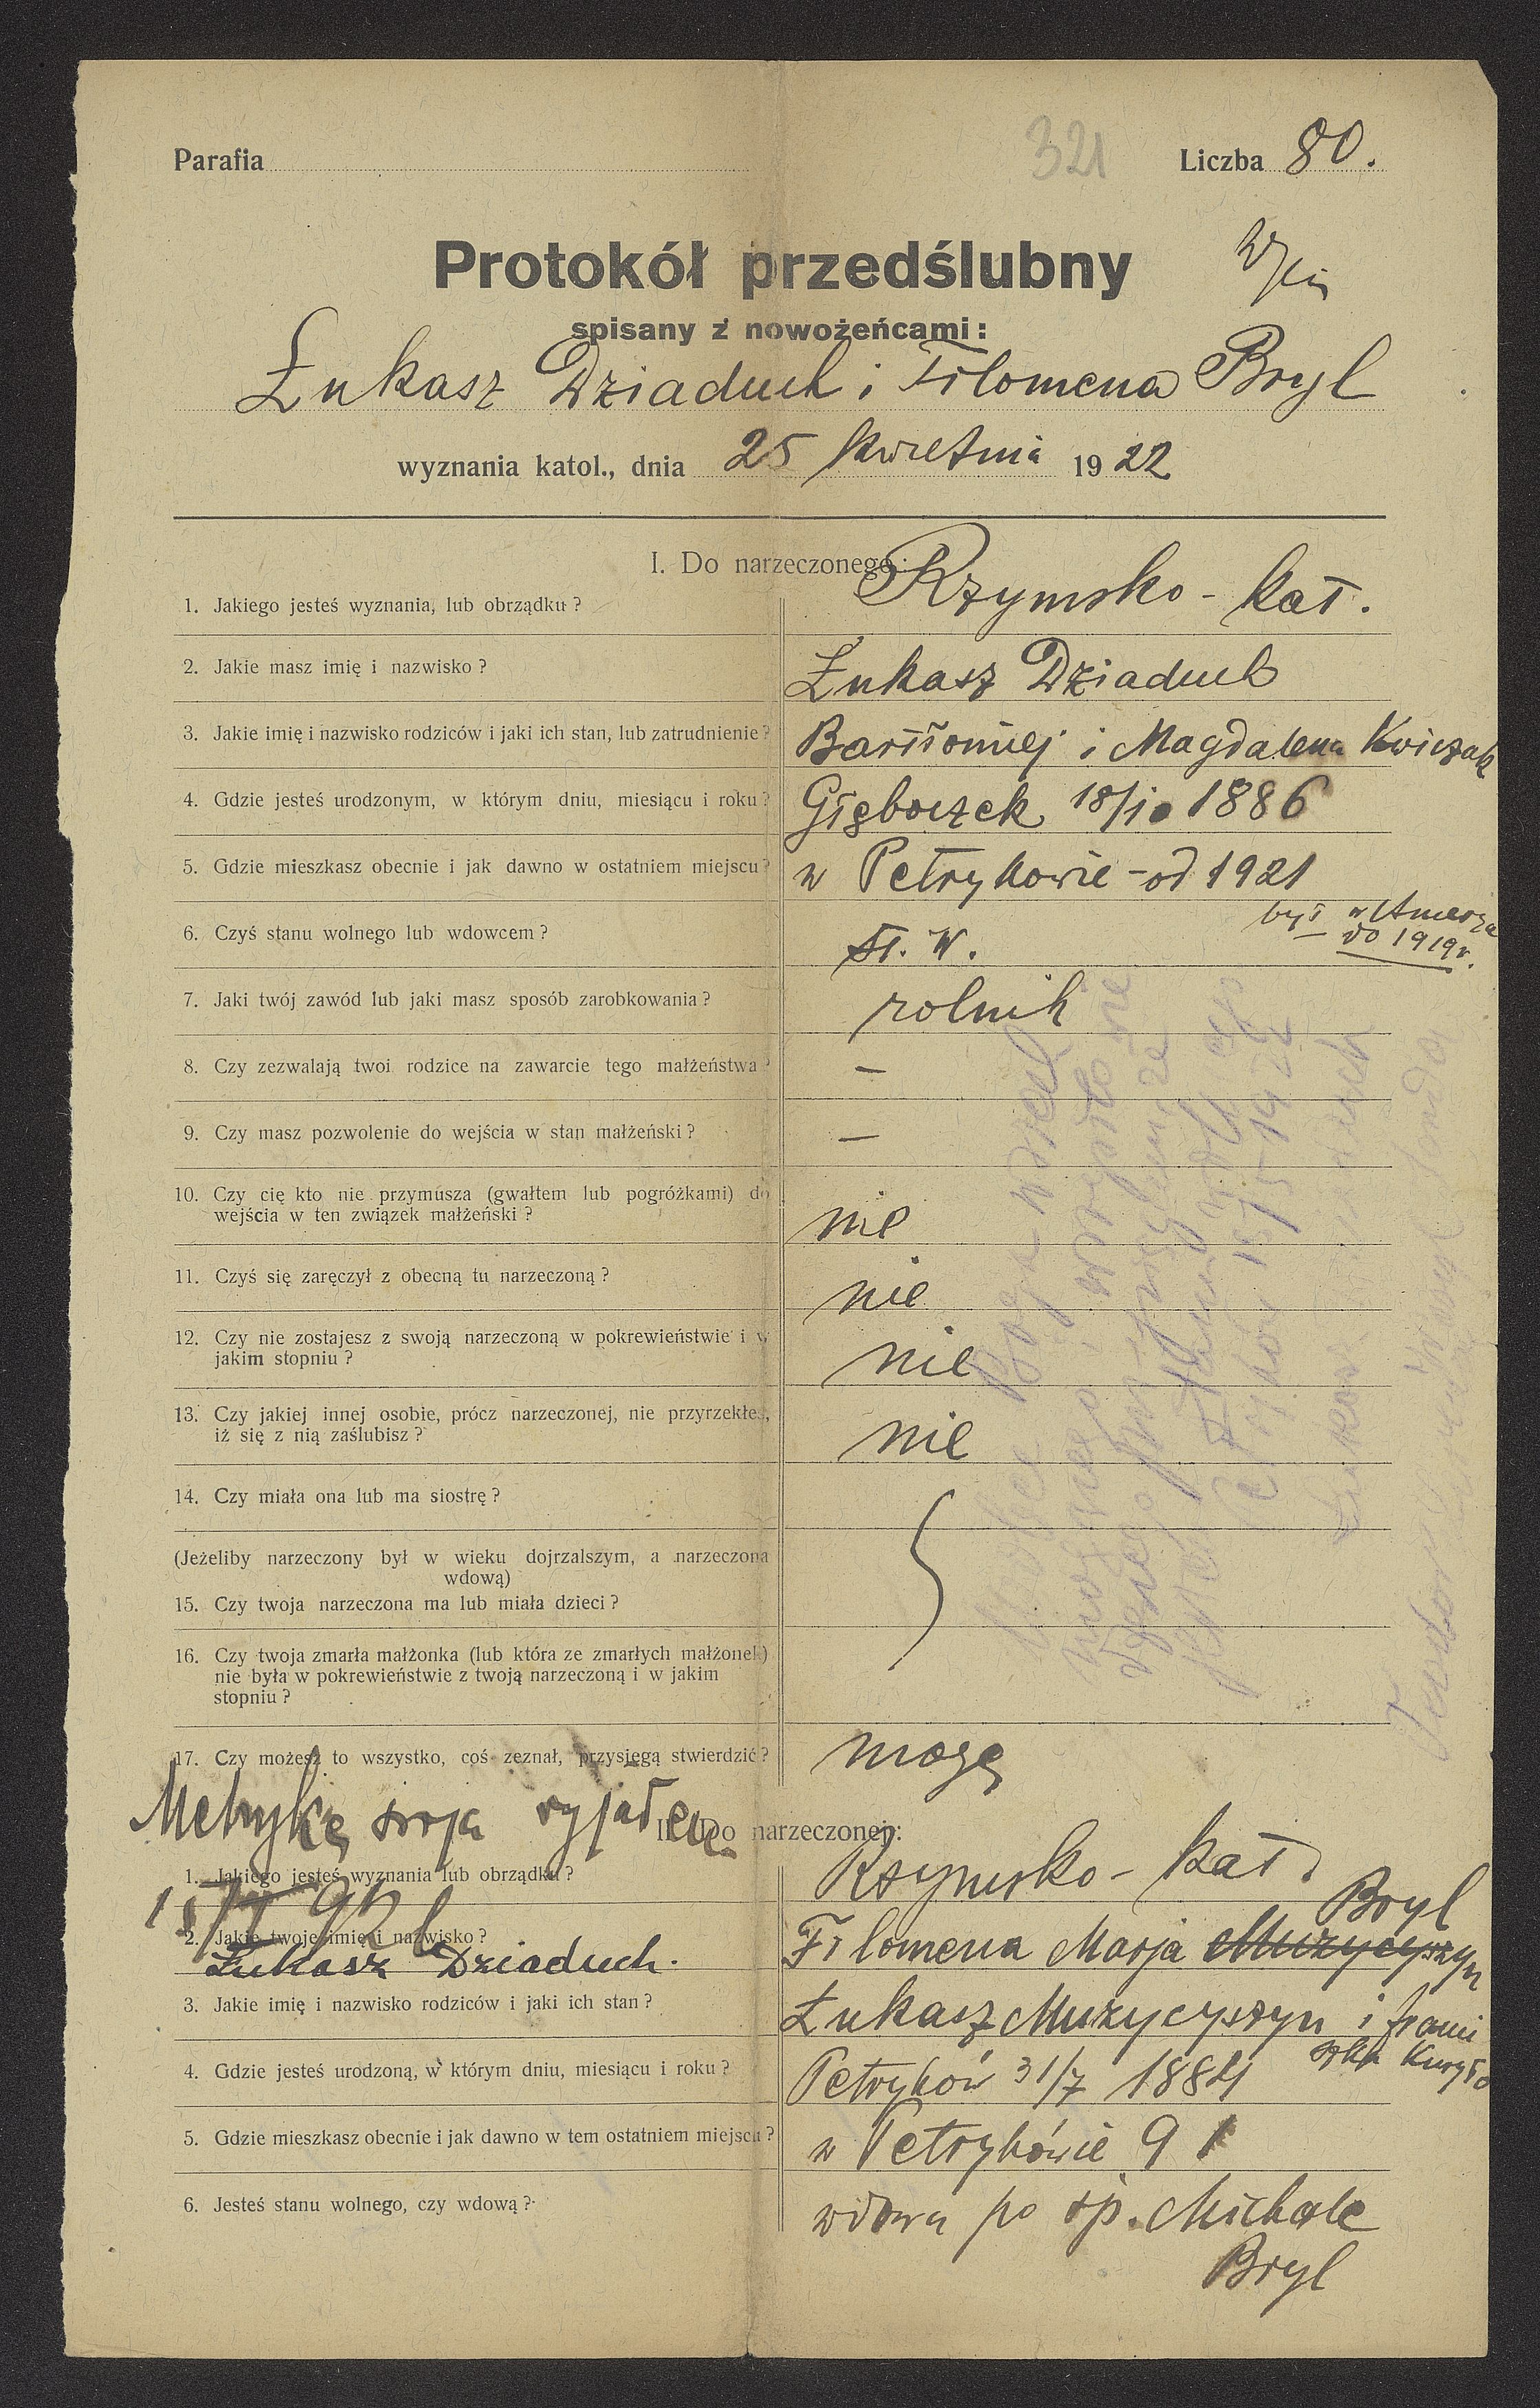 Parafia
321
Liczba 80.
Protokół przedślubny
spisany z nowożeńcami:
Łukasz Dziaduch i Filomena Bryl
wyznania katol., dnia 25 kwietnia 1922
I. Do narzeczonego:
1. Jakiego jesteś wyznania, lub obrządku? Rzymsko-kat.
2. Jakie masz imię i nazwisko? Łukasz Dziaduch
3. Jakie imię i nazwisko rodziców i jaki ich stan, lub zatrudnienie? Bartłomiej i Magdalena Kwiczak
4. Gdzie jesteś urodzonym, w którym dniu, miesiącu i roku? Głęboczek 18/10 1886
5. Gdzie mieszkasz obecnie i jak dawno w ostatniem miejscu? w Petrykowie - od 1921
był w
do 1919 r.
6. Czyś stanu wolnego lub wdowcem? st. w.
7. Jaki twój zawód lub jaki masz sposób zarobkowania? rolnik
8. Czy zezwalają twoi rodzice na zawarcie tego małżeństwa? —
9. Czy masz pozwolenie do wejścia w stan małżeński? —
10. Czy cię kto nie przymusza (gwałtem lub pogróżkami) do
wejścia w ten związek małżeński? nie
11. Czyś się zaręczył z obecną tu narzeczoną? nie
12. Czy nie zostajesz z swoją narzeczoną w pokrewieństwie i w
jakim stopniu? nie
13. Czy jakiej innej osobie, prócz narzeczonej, nie przyrzekłeś,
iż się z nią zaślubisz? nie
14. Czy miała ona lub ma siostrę?
(Jeżeliby narzeczony był w wieku dojrzalszym, a narzeczona
wdową)
15. Czy twoja narzeczona ma lub miała dzieci?
16. Czy twoja zmarła małżonka (lub która ze zmarłych małżonek)
nie była w pokrewieństwie z twoją narzeczoną i w jakim
stopniu?
17. Czy możesz to wszystko, coś zeznał, przysięgą stwierdzić? mogę
Metrykę swoją wyjąłem
II. Do narzeczonej:
1. Jakiego jesteś wyznania lub obrządku? Rzymsko-kat.
Bryl
2. Jakie twoje imię i nazwisko? Filomena Marja Muzyczyszyn
Łukasz Dziaduch.
3. Jakie imię i nazwisko rodziców i jaki ich stan? Łukasz Muzyczyszyn i Franci
szka Kuryło
4. Gdzie jesteś urodzoną, w którym dniu, miesiącu i roku? Petryków 31/7 1884
5. Gdzie mieszkasz obecnie i jak dawno w tem ostatniem miejscu? w Petrykowie 91
6. Jesteś stanu wolnego, czy wdową? wdowa po śp. Michale
Bryl